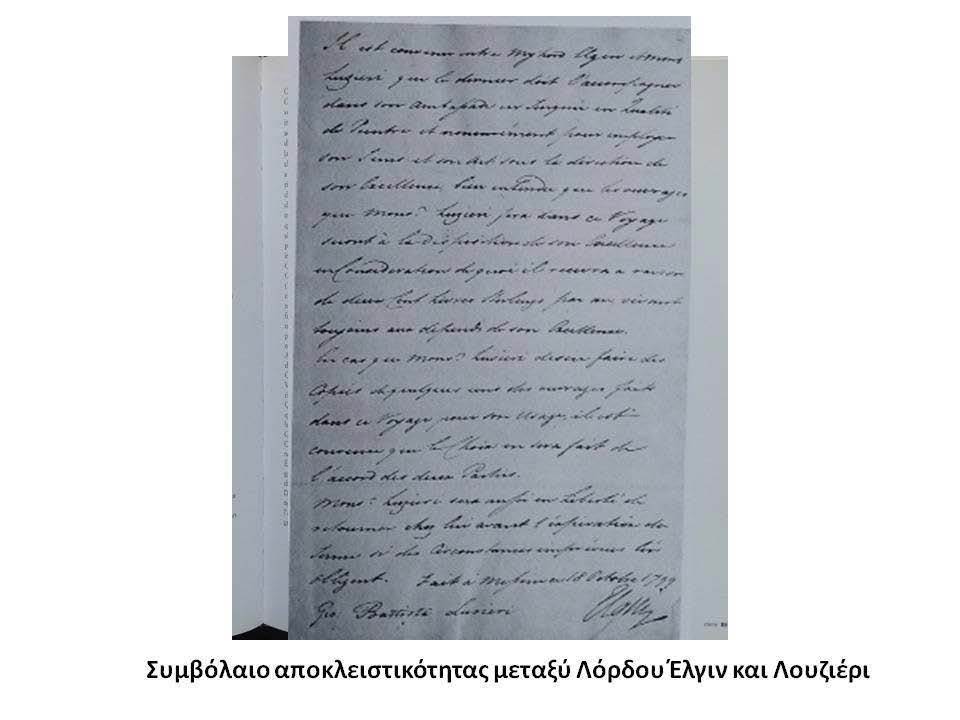 Il est convenu entre Mylord Elgin et Mons.
Luzieri que le dernier doit l'accompagner
dans son Ambassade en Turquie en Qualité
de Peintre et nommément pour employer
son Tems et son Art sous la direction de
son Excellence, bien entendu que les ouvrages
que Mons.r Luzieri fera dans ce Voyage
seront à la Disposition de son Excellence
en Consideration de quoi il recevra a raison
de deux Cent Livres Sterlings par an, vivant
toujours aux depends de son Excellence.
En cas que Mons.r Lusieri desire faire des
Copies de quelques uns des ouvrages faits
dans ce Voyage pour son Usage, il est
convenu que le Choix en sera fait de
l'accord des deux Parties.
Mons.r Luzieri sera aussi en Liberté de
retourner chez lui avant l'expiration du
terme si des Circonstances imprévues l'y
obligent. Fait à Messine ce 18 Octobre 1799
Gio. Battista Lusieri Elgin
Συμβόλαιο αποκλειστικότητας μεταξύ Λόρδου Έλγιν και Λουζιέρι